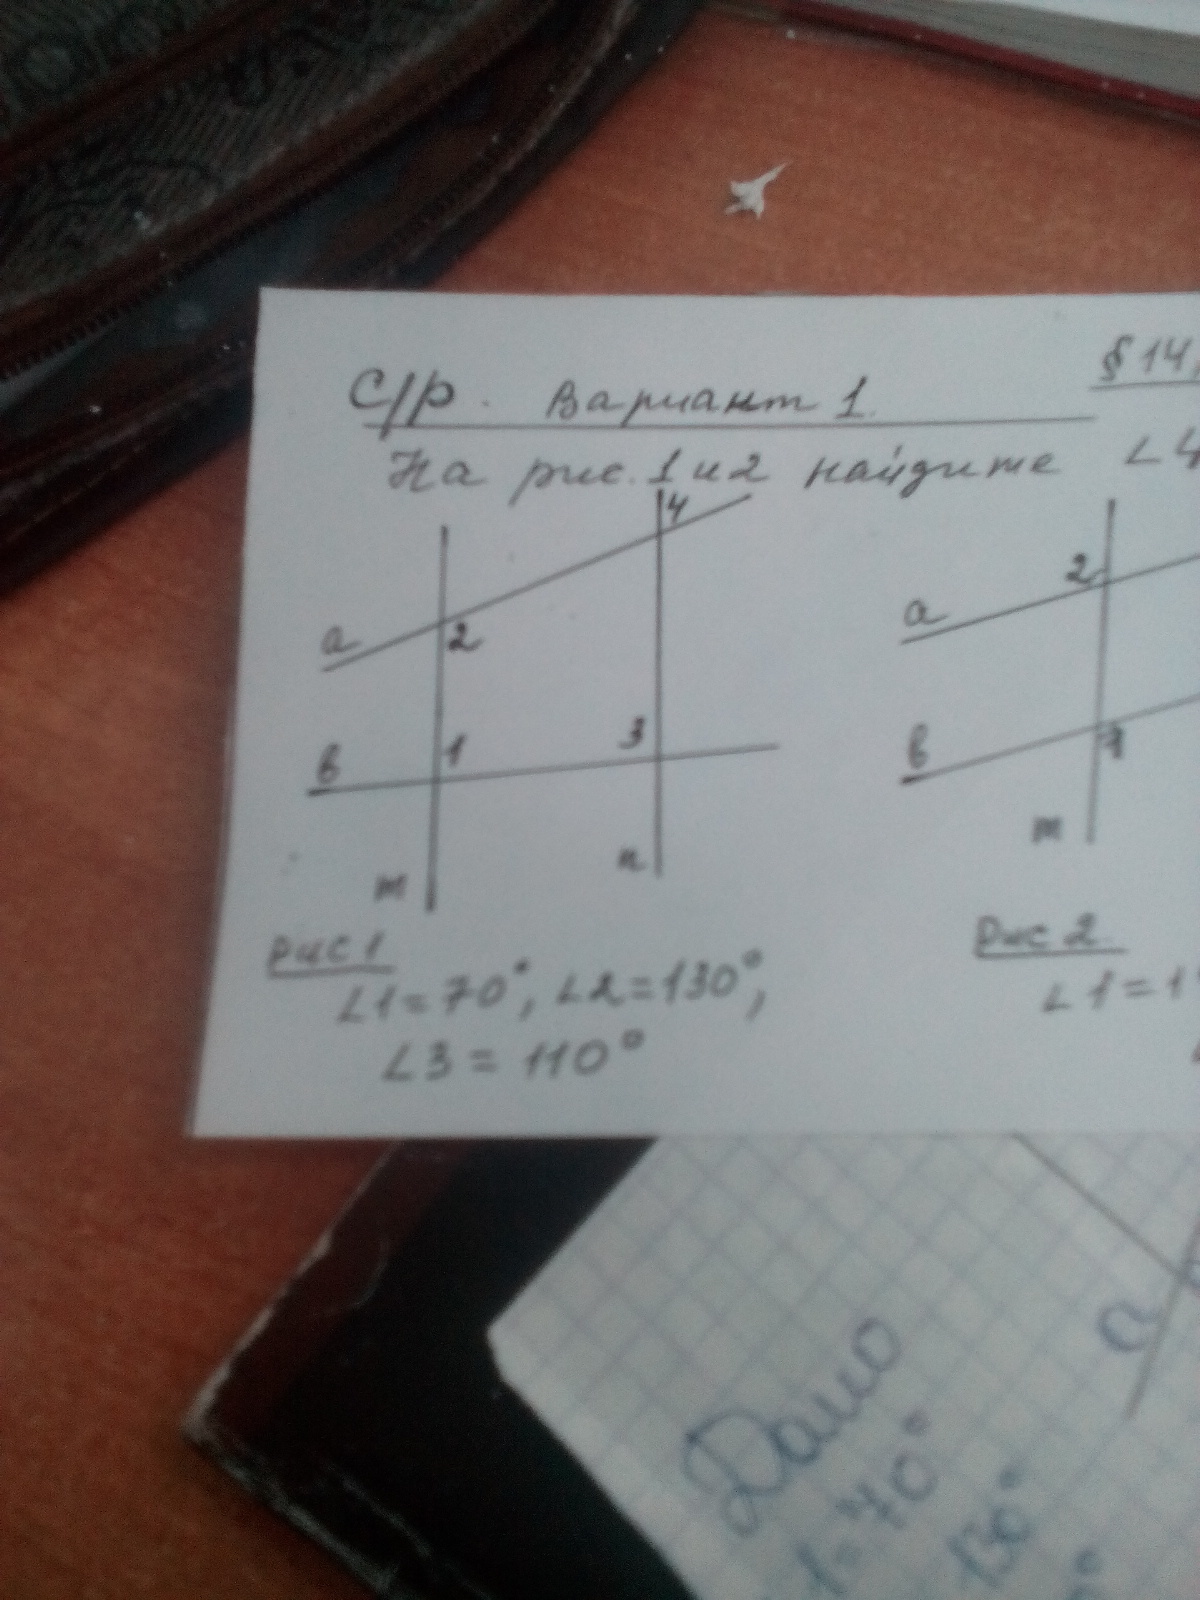 С/р. Вариант 1.
§ 14,
На рис. 1 и 2 найдите ∠4
a
2
4
в
1
3
m
n
Рис 1
∠1=70°, ∠2=130°,
∠3 = 110°
2
a
в
1
m
Рис 2
∠1=1
Дано
1=70°
130°
a